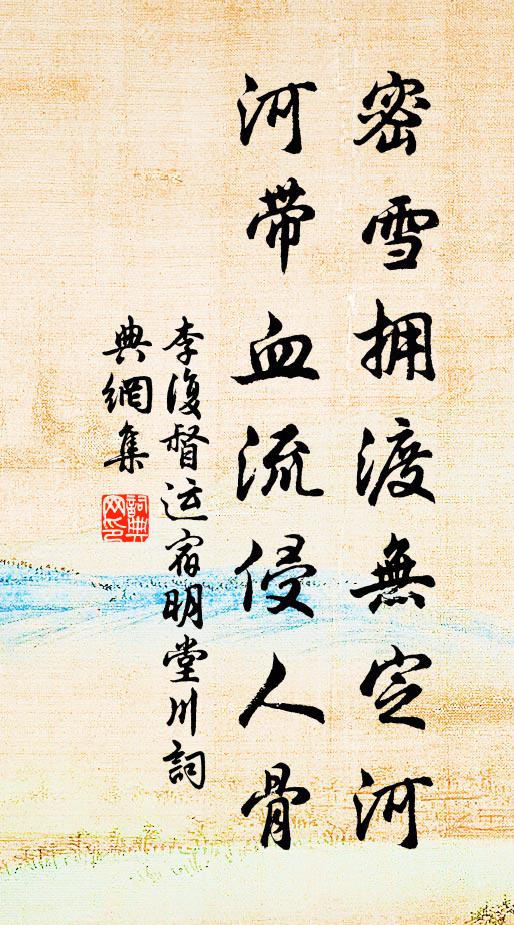 密雪拥渡無定河
河帶血流侵人骨
李復督运宿明堂川詞
典網集
詞典网印